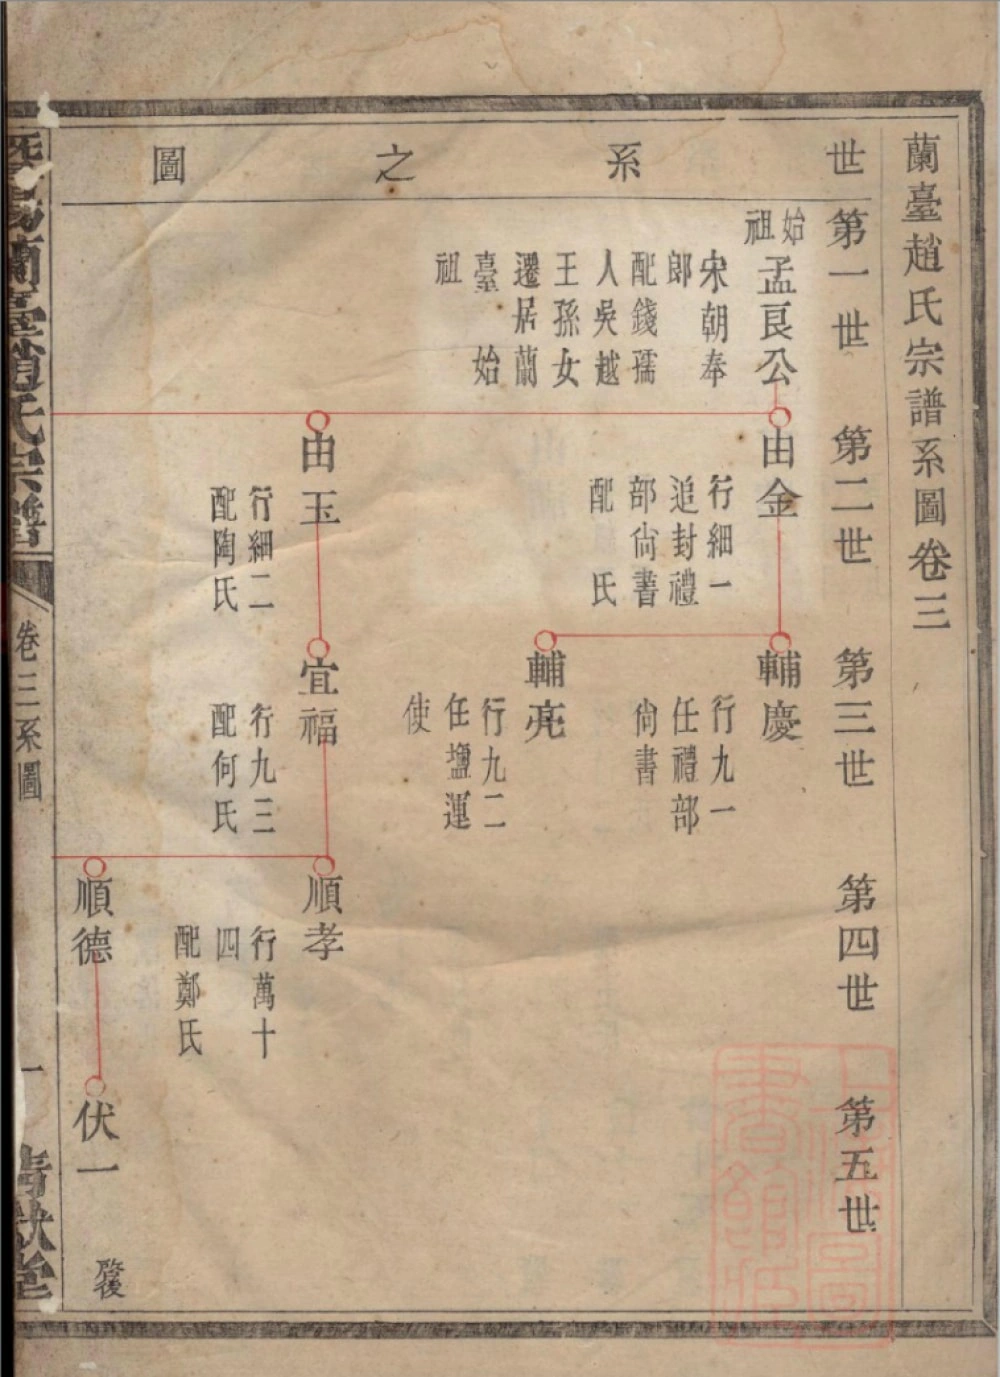 蘭臺趙氏宗譜系圖卷三
世系之圖
第一世
第二世
第三世
第四世
第五世
始祖
孟良公
宋朝奉
郎
配錢孺
人吳越
王孫女
遷居蘭
臺 始
祖
由金
行細一
追封禮
部尙書
配 氏
由玉
行細二
配陶氏
輔慶
行九一
任禮部
尙書
輔亮
行九二
任鹽運
使
宜福
行九三
配何氏
順孝
行萬十
四
配鄭氏
順德
伏一
啓後
暨陽蘭臺趙氏宗譜
卷三系圖
一
清獻堂